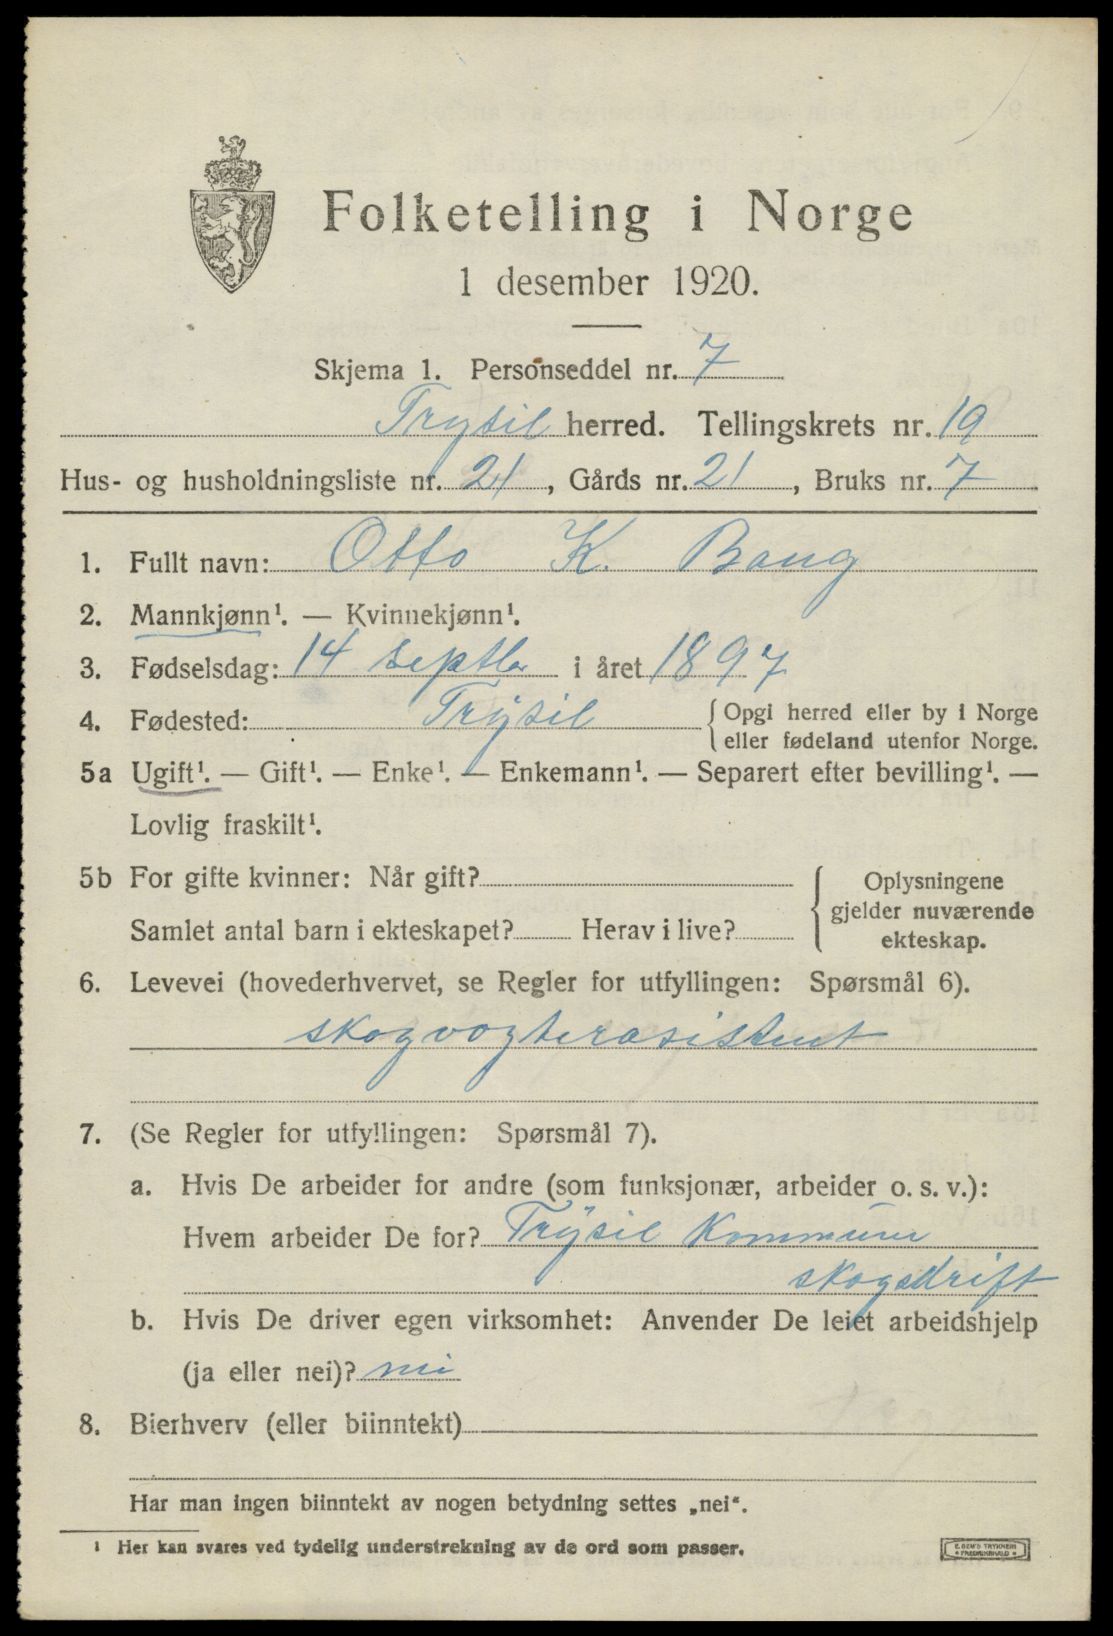 Folketelling i Norge
1 desember 1920.
Skjema 1. Personseddel nr. 7
Trysil herred. Tellingskrets nr. 19
Hus- og husholdningsliste nr. 21, Gårds nr. 21, Bruks nr. 7
1. Fullt navn: Otto K. Bang
2. Mannkjønn¹. — Kvinnekjønn¹.
3. Fødselsdag: 14 septbr i året 1897
4. Fødested: Trysil {Opgi herred eller by i Norge
eller fødeland utenfor Norge.
5a Ugift¹. — Gift¹. — Enke¹. — Enkemann¹. — Separert efter bevilling¹. —
Lovlig fraskilt¹.
5b For gifte kvinner: Når gift?
Samlet antal barn i ekteskapet? Herav i live?
Oplysningene
gjelder nuværende
ekteskap.
6. Levevei (hovederhvervet, se Regler for utfyllingen: Spørsmål 6).
skogvogterasistent
7. (Se Regler for utfyllingen: Spørsmål 7).
a. Hvis De arbeider for andre (som funksjonær, arbeider o. s. v.):
Hvem arbeider De for? Trysil Kommune
skogsdrift
b. Hvis De driver egen virksomhet: Anvender De leiet arbeidshjelp
(ja eller nei)? nei
8. Bierhverv (eller biinntekt)
Har man ingen biinntekt av nogen betydning settes „nei“.
¹ Her kan svares ved tydelig understrekning av de ord som passer.